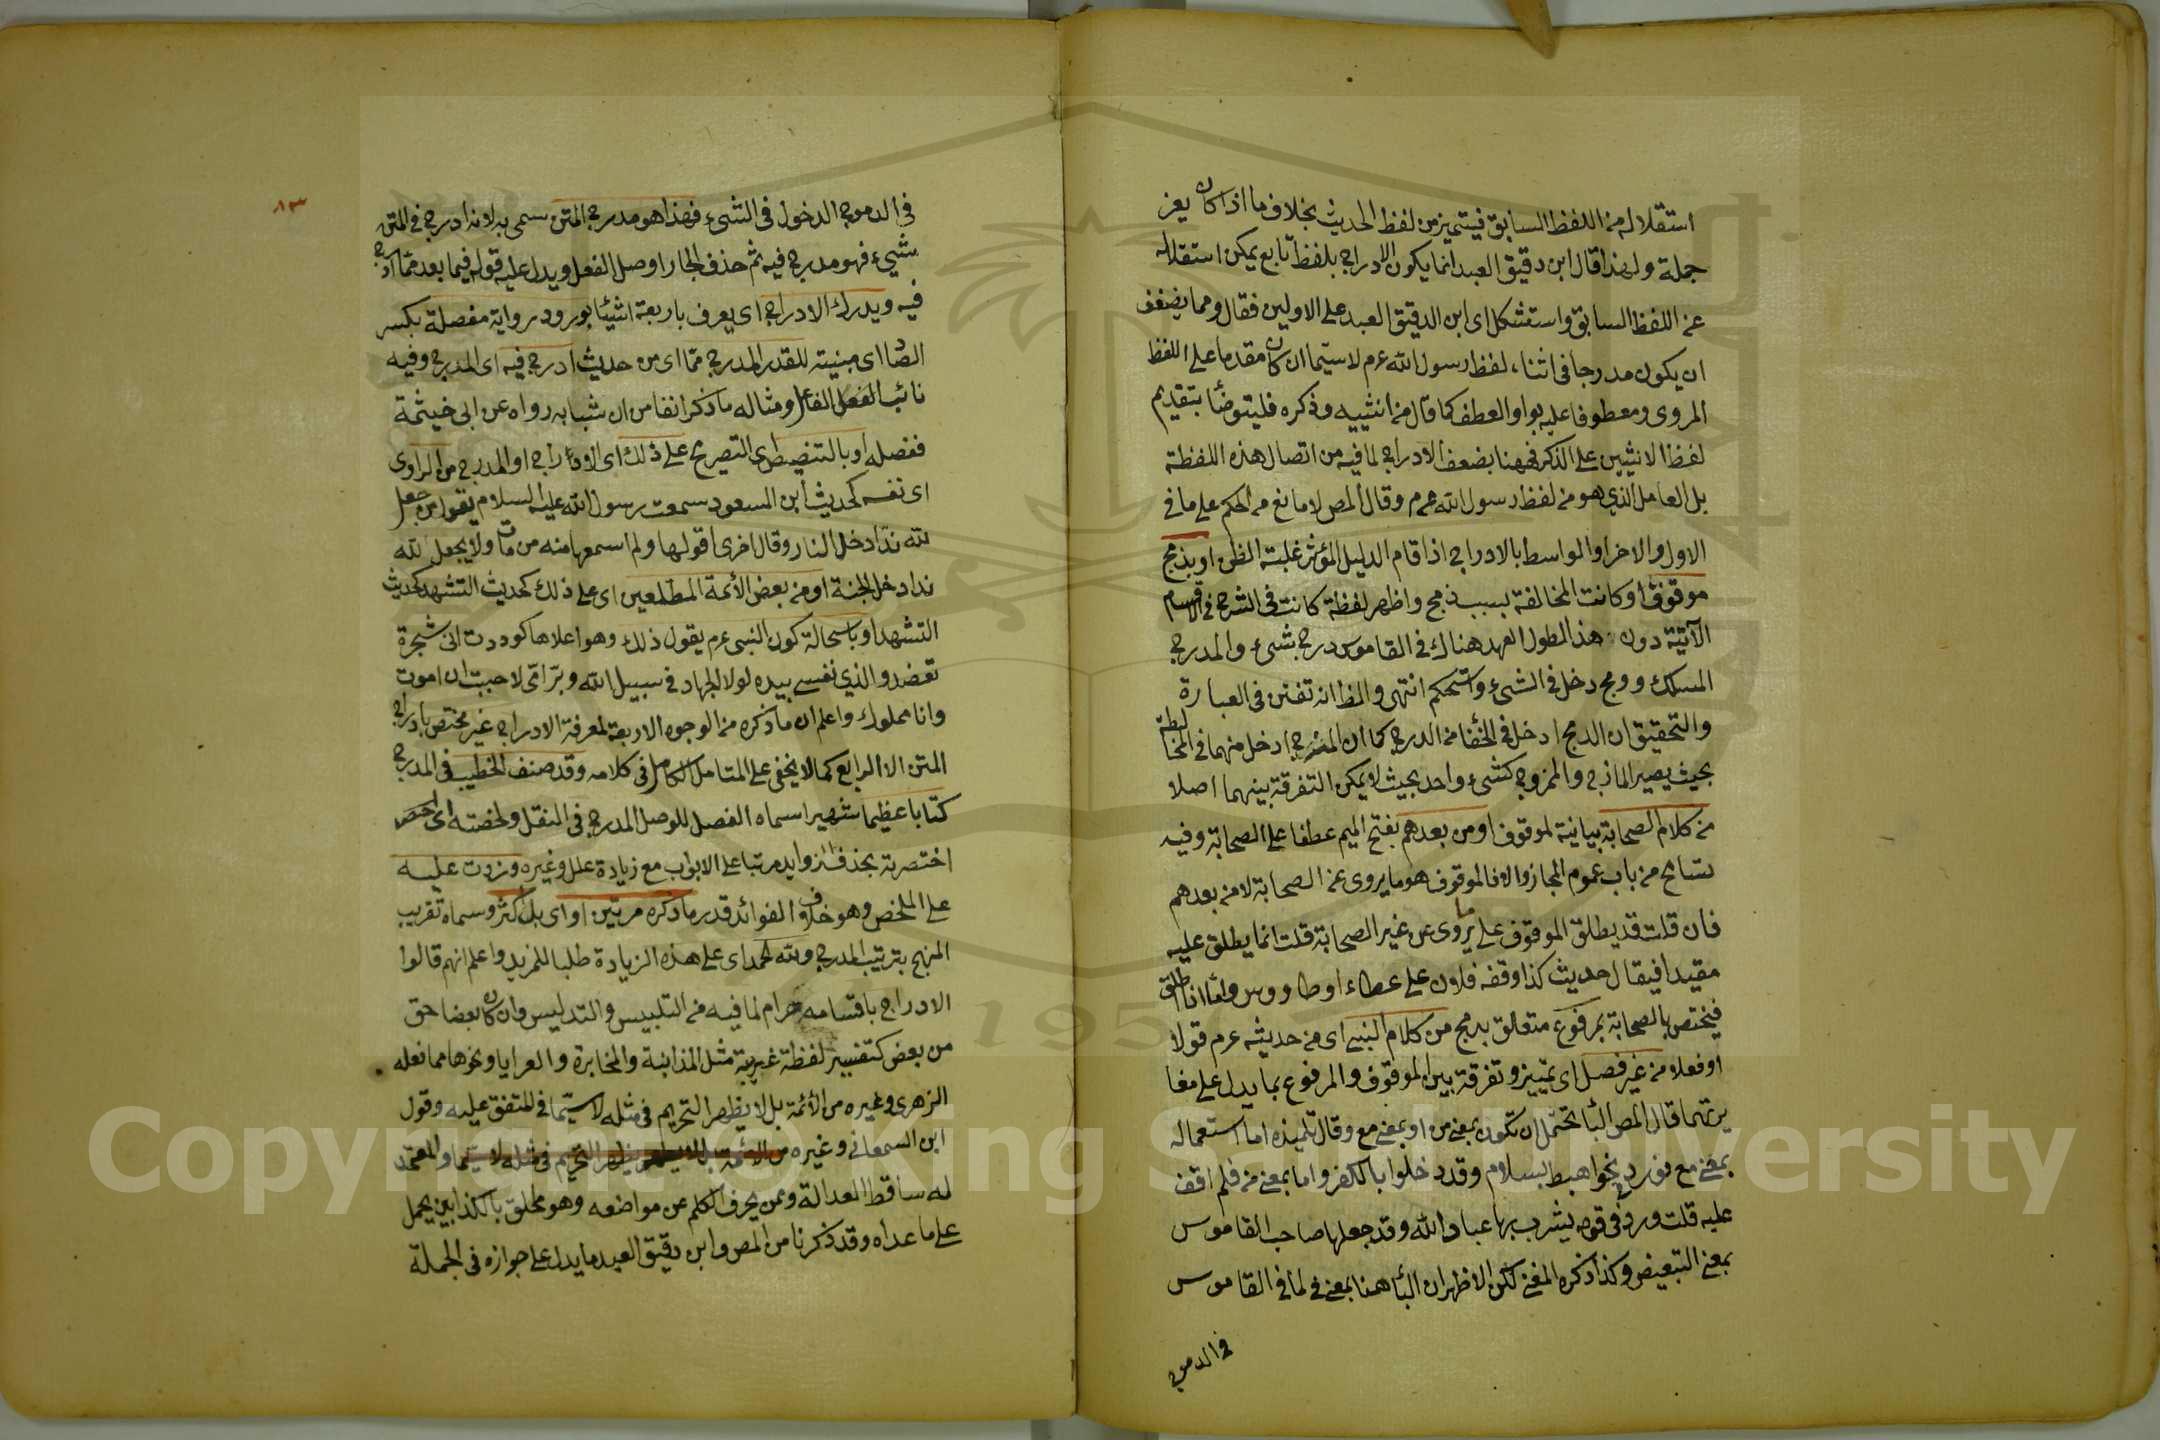 استقلاله من اللفظ السابق فيتميز من لفظ الحديث بخلاف ما اذا كان يغير
جملة ولهذا قال ابن دقيق العبد انما يكون الادراج بلفظ تابع يمكن استقلاله
عن اللفظ السابق واستشكل اى ابن الدقيق العبد على الاولين فقال ومما يضعف
ان يكون مدرجا فى اثناء لفظ رسول الله عرم لاسيما ان كان مقدما على اللفظ
المروى ومعطوفا عليه بواو العطف كما قال من انثييه وذكره فليتوضأ بتقديم
لفظ الانثيين على الذكر فههنا يضعف الادراج لما فيه من اتصال هذه اللفظة
بل العامل الذي هو من لفظ رسول الله عرم وقال المص لا مانع من الحكم على ما فى
الاول والاخر او الواسط بالادراج اذا قام الدليل المؤثر غلبة الظن او بدمج
موقوف او كانت المخالفة بسبب دمج واظهر لفظة كانت فى الشرح فى الاقسام
الآتية دون هذا لطول العهد هناك فى القاموس درج بشىء والمدرج
المسلك ودمج دخل فى الشىء واستحكم انتهى والظ انه تفنن فى العبارة
والتحقيق ان الدمج ادخل فى الخفا من الدرج كما ان المزج ادخل منهما فى المخالطة
بحيث يصير الماذج والممزوج كشىء واحد بحيث لا يمكن التفرقة بينهما اصلا
من كلام الصحابة بيانية لموقوف او من بعدهم بفتح الميم عطفا على الصحابة وفيه
تسامح من باب عموم المجاز والا فالموقوف هو ما يروى عن الصحابة لا من بعدهم
فان قلت قد يطلق الموقوف على ما يروى عن غير الصحابة قلت انما يطلق عليه
مقيدا فيقال حديث كذا وقفه فلان على عطاء او طاووس واما اذا اطلق
فيختص بالصحابة بمرفوع متعلق بدمج من كلام النبى اى من حديثه عرم قولا
او فعلا من غير فصل اى تمييز وتفرقة بين الموقوف والمرفوع بما يدل على مغا
يرتهما قال المص البا تحتمل ان تكون بمعنى من او بمعنى مع وقال تلميذه اما استعماله
بمعنى مع فورد نحو اهبط بسلام وقد دخلوا بالكفر واما بمعنى من فلم اقف
عليه قلت ورد فى قوله يشرب بها عباد الله وقد جعلها صاحب القاموس
بمعنى التبعيض وكذا ذكره المغنى لكن الاظهر ان البا ههنا بمعنى فى لما فى القاموس
فى الدموج
٨٣
فى الدموج الدخول فى الشىء فهذا هو مدرج المتن سمى به لانه ادرج فى المتن
شىء فهو مدرج فيه ثم حذف الجار اوصل الفعل ويدل عليه قوله فيما بعد مما ادرج
فيه ويدرك الادراج اى يعرف باربعة اشيئا بورود رواية مفصلة بكسر
الصاد اى مبنية للقدر المدرج مما اى من حديث ادرج فيه اى المدرج وفيه
نائب الفعل الفاعل ومثاله ما ذكر انفا من ان شبابه رواه عن ابى خيثمة
ففصله او بالتنصيص اى التصريح على ذلك اى الادراج او المدرج من الراوى
اى نفسه كحديث ابن المسعود سمعت رسول الله عليه السلام يقول من جعل
لله ندا دخل النار وقال اخرى اقولها ولم اسمعها منه من مات ولا يجعل لله
ندا دخل الجنة او من بعض الأئمة المطلعين اى على ذلك كحديث التشهد كحديث
التشهد او باستحالة كون النبى عرم يقول ذلك وهو اعلاها كوددت انى شجرة
تعضد والذي نفسى بيده لولا الجهاد فى سبيل الله وبر امى لاحببت ان اموت
وانا مملوك واعلم ان ما ذكره من الوجوه الاربعة لمعرفة الادراج غير مختص بادراج
المتن الا الرابع كما لا يخفى على المتامل الكامل فى كلامه وقد صنف الخطيب فى المدرج
كتابا عظيما شهيرا سماه الفصل للوصل المدرج فى النقل ولخصته اى اختصر
اختصرته بحذف الزوايد مرتبا على الابواب مع زيادة علل وغيره وزدت عليه
على الملخص وهو خلاف الفوائد قدر ما ذكره مرتين او اى بل اكثر وسماه تقريب
المنهج بترتيب المدرج ولله الحمد اى على هذه الزيادة طلبا للمزيد واعلم انهم قالوا
الادراج باقسامه حرام لما فيه من التلبيس والتدليس وان كان بعضا حق
من بعض كتفسير لفظة غريبة مثل المذابنة والمخابرة والعرايا ونحوها مما فعله
الزهرى وغيره من الأئمة بل لا يظهر التحريم فى مثله لاسيما فى المتفق عليه وقول
ابن السمعانى وغيره من الأئمة بل لا يظهر التحريم فى مثله لاسيما والمعتمد
له ساقط العدالة وممن يحرف الكلم عن مواضعه وهو ملحق بالكذابين يحمل
على ما عداه وقد ذكرنا من المص وابن دقيق العيد ما يدل على جوازه فى الجملة
Copyright © King Saud University
195